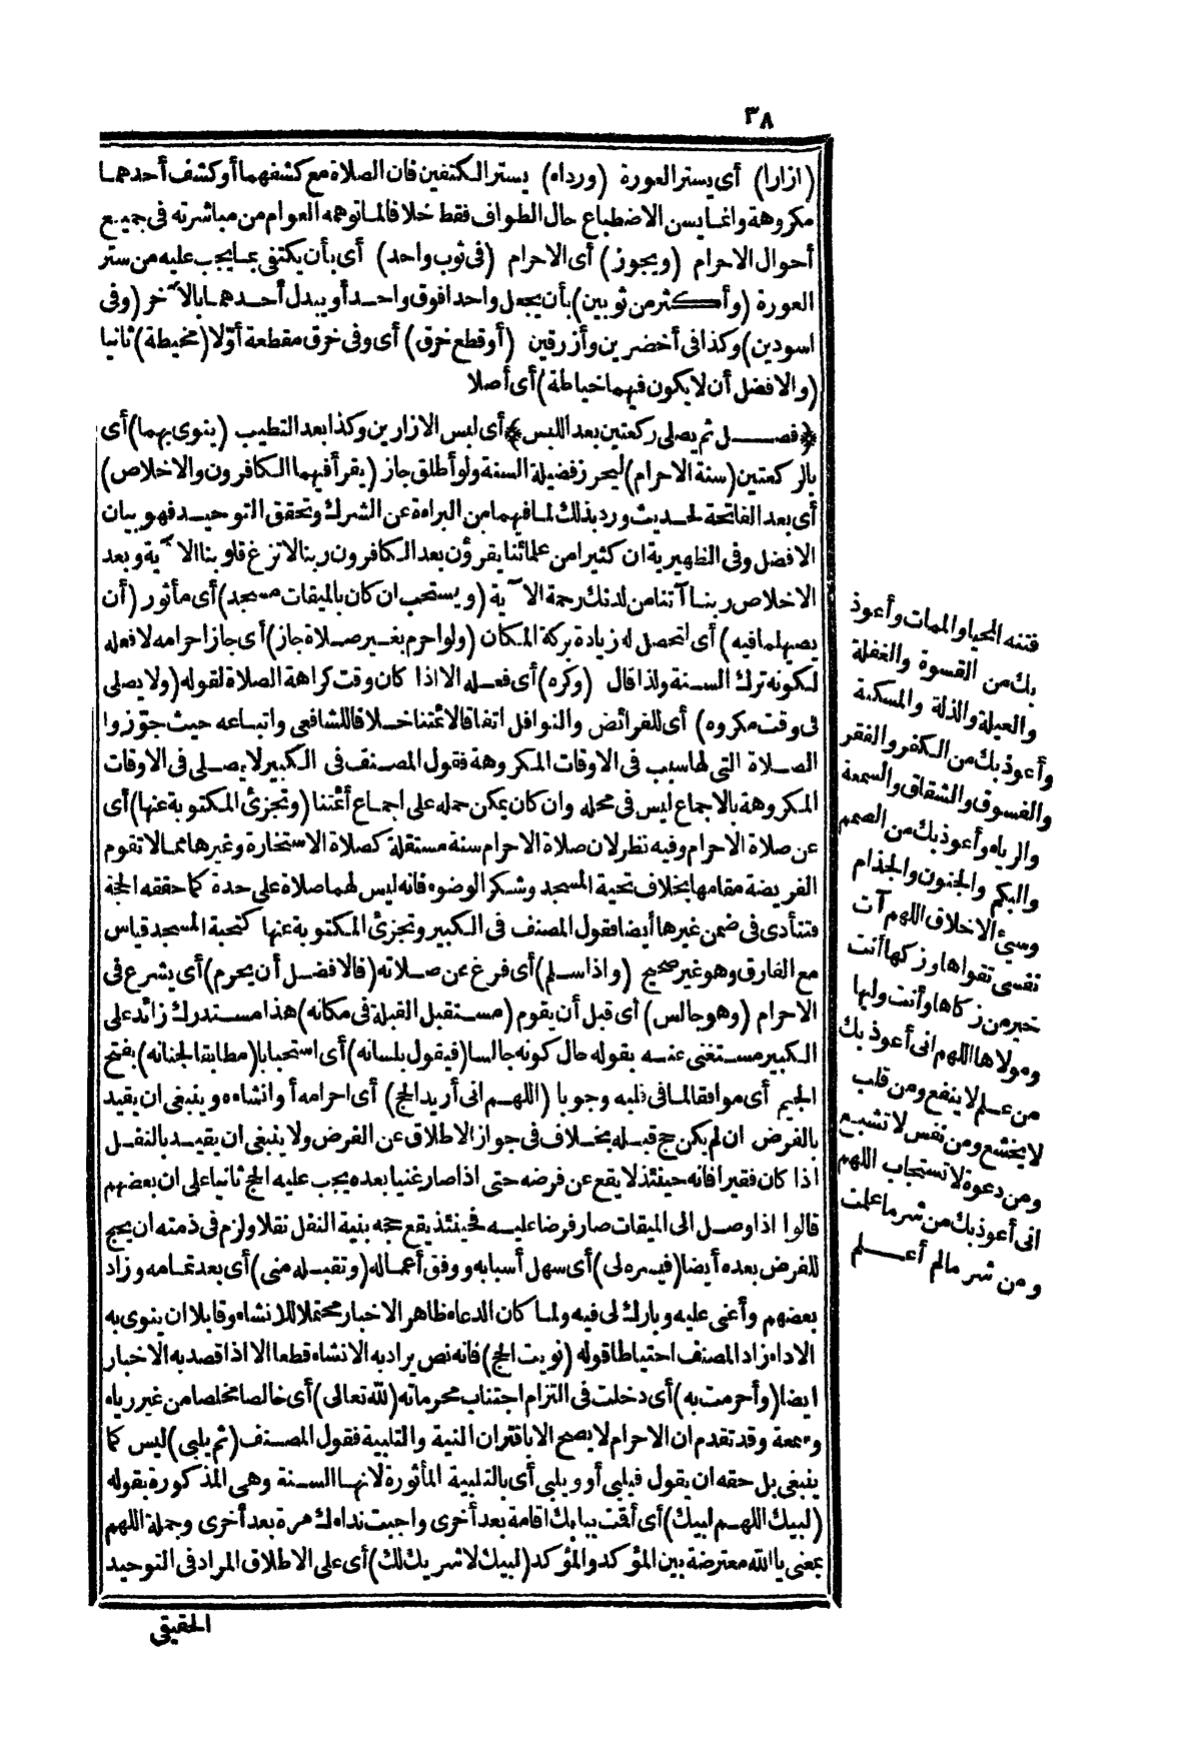 ٣٨
(ازارا) أى يستر العورة (ورداء) يستر الكتفين فان الصلاة مع كشفهما أو كشف أحدهما
مكروهة وانما يسن الاضطباع حال الطواف فقط خلافا لما توهمه العوام من مباشرته فى جميع
أحوال الاحرام (ويجوز) أى الاحرام (فى ثوب واحد) أى بأن يكتفى بما يجب عليه من ستر
العورة (وأكثر من ثوبين) بأن يجعل واحدا فوق واحد أو يبدل أحدهما بالآخر (وفى
اسودين) وكذا فى أخضرين وأزرقين (أو قطع خرق) أى وفى خرق مقطعة أوّلا (مخيطة) ثانيا
(والافضل أن لا يكون فيهما خياطة) أى أصلا
﴿فصل ثم يصلى ركعتين بعد اللبس﴾ أى لبس الازارين وكذا بعد التطيب (ينوى بهما) أى
بالركعتين (سنة الاحرام) ليحرز فضيلة السنة ولو أطلق جاز (يقرأ فيهما الكافرون والاخلاص)
أى بعد الفاتحة لحديث ورد بذلك لما فيهما من البراءة عن الشرك وتحقق التوحيد فهو بيان
الافضل وفى الظهيرية ان كثيرا من علمائنا يقرؤن بعد الكافرون ربنا لا تزغ قلوبنا الآية وبعد
الاخلاص ربنا آتنا من لدنك رحمة الآية (ويستحب ان كان بالميقات مسجد) أى مأثور (أن
يصليهما فيه) أى لتحصل له زيادة بركة المكان (ولو احرم بغير صلاة جاز) أى جاز احرامه لا فعله
لكونه ترك السنة ولذا قال (وكره) أى فعله الا اذا كان وقت كراهة الصلاة لقوله (ولا يصلى
فى وقت مكروه) أى للفرائض والنوافل اتفاقا لائمتنا خلافا للشافعى واتباعه حيث جوّزوا
الصلاة التى لها سبب فى الاوقات المكروهة فقول المصنف فى الكبير لا يصلى فى الاوقات
المكروهة بالاجماع ليس فى محله وان كان يمكن حمله على اجماع أئمتنا (وتجزئ المكتوبة عنها) أى
عن صلاة الاحرام وفيه نظر لان صلاة الاحرام سنة مستقلة كصلاة الاستخارة وغيرها مما لا تقوم
الفريضة مقامها بخلاف تحية المسجد وشكر الوضوء فانه ليس لهما صلاة على حدة كما حققه الحجة
فتتأدى فى ضمن غيرها أيضا فقول المصنف فى الكبير وتجزئ المكتوبة عنها كتحية المسجد قياس
مع الفارق وهو غير صحيح (واذا سلم) أى فرغ عن صلاته (فالافضل أن يحرم) أى يشرع فى
الاحرام (وهو جالس) أى قبل أن يقوم (مستقبل القبلة فى مكانه) هذا مستدرك زائد على
الكبير مستغنى عنه بقوله حال كونه جالسا (فيقول بلسانه) أى استحبابا (مطابقا لجنانه) بفتح
الجيم أى موافقا لما فى قلبه وجوبا (اللهم انى أريد الحج) أى احرامه أو انشاءه وينبغى ان يقيد
بالفرض ان لم يكن حج قبله بخلاف فى جواز الاطلاق عن الفرض ولا ينبغى ان يقيد بالنفل
اذا كان فقيرا فانه حينئذ لا يقع عن فرضه حتى اذا صار غنيا بعده يجب عليه الحج ثانيا على ان بعضهم
قالوا اذا وصل الى الميقات صار فرضا عليه فحينئذ يقع حجه بنية النفل نفلا ولزم فى ذمته ان يحج
للفرض بعده أيضا (فيسره لى) أى سهل أسبابه ووفق أعماله (وتقبله منى) أى بعد تمامه وزاد
بعضهم وأعنى عليه وبارك لى فيه ولما كان الدعاء ظاهر الاخبار محتملا للانشاء وقابلا ان ينوى به
الاداء زاد المصنف احتياطا قوله (نويت الحج) فانه نص يراد به الانشاء قطعا الا اذا قصد به الاخبار
ايضا (وأحرمت به) أى دخلت فى التزام اجتناب محرماته (لله تعالى) أى خالصا مخلصا من غير رياء
وسمعة وقد تقدم ان الاحرام لا يصح الا باقتران النية والتلبية فقول المصنف (ثم يلبى) ليس كما
ينبغى بل حقه ان يقول فيلبى أو ويلبى أى بالتلبية المأثورة لانها السنة وهى المذكورة بقوله
(لبيك اللهم لبيك) أى أقمت ببابك اقامة بعد أخرى واجبت نداءك مرة بعد أخرى وجملة اللهم
بمعنى يا الله معترضة بين المؤكد والمؤكد (لبيك لا شريك لك) أى على الاطلاق المراد فى التوحيد
الحقيقى
فتنه المحيا والممات وأعوذ
بك من القسوة والغفلة
والعيلة والذلة والمسكنة
وأعوذ بك من الكفر والفقر
والفسوق والشقاق والسمعة
والرياء وأعوذ بك من الصمم
والبكم والجنون والجذام
وسيء الاخلاق اللهم آت
نفسى تقواها وزكها أنت
خير من زكاها وأنت وليها
ومولاها اللهم انى أعوذ بك
من علم لا ينفع ومن قلب
لا يخشع ومن نفس لا تشبع
ومن دعوة لا تستجاب اللهم
انى أعوذ بك من شر ما علمت
ومن شر مالم أعلم